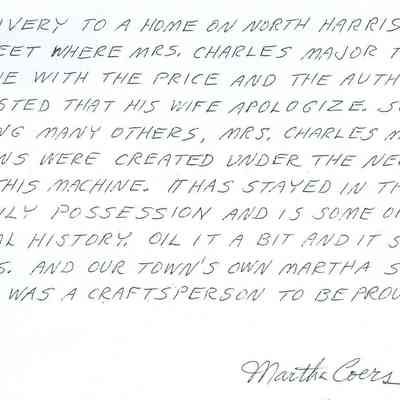 IVERY TO A HOME ON NORTH HARRIS
EET WHERE MRS. CHARLES MAJOR T
E WITH THE PRICE AND THE AUTH
STED THAT HIS WIFE APOLOGIZE. S
NG MANY OTHERS, MRS. CHARLES M
NS WERE CREATED UNDER THE NE
THIS MACHINE. IT HAS STAYED IN TH
ILY POSSESSION AND IS SOME O
AL HISTORY. OIL IT A BIT AND IT S
S. AND OUR TOWN'S OWN MARTHA S
WAS A CRAFTSPERSON TO BE PROU
Martha Coers